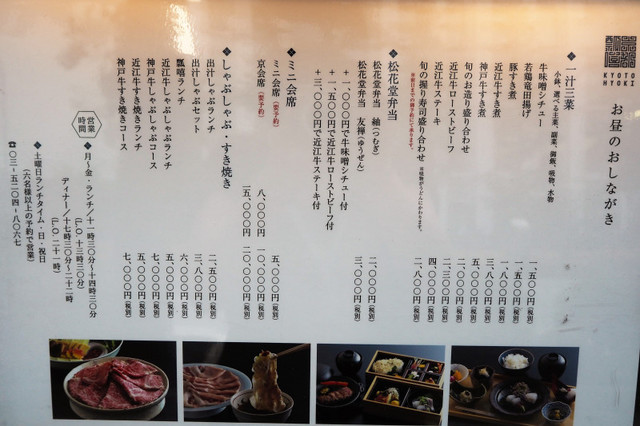 お昼のおしながき
◆一汁三菜
小鉢、選べる主菜、副菜、御飯、吸物、水物
牛味噌シチュー 一、五〇〇円(税別)
若鶏竜田揚げ 一、五〇〇円(税別)
豚すき煮 一、八〇〇円(税別)
近江牛すき煮 三、八〇〇円(税別)
神戸牛すき煮 五、〇〇〇円(税別)
旬のお造り盛り合わせ 二、〇〇〇円(税別)
近江牛ローストビーフ 二、三〇〇円(税別)
近江牛ステーキ 四、〇〇〇円(税別)
旬の握り寿司盛り合わせ 二、八〇〇円(税別)
◆松花堂弁当
松花堂弁当 紬(つむぎ) 二、〇〇〇円(税別)
松花堂弁当 友禅(ゆうぜん) 三、〇〇〇円(税別)
+一、〇〇〇円で牛味噌シチュー付
+一、五〇〇円で近江牛ローストビーフ付
+三、〇〇〇円で近江牛ステーキ付
◆ミニ会席
ミニ会席(要予約) 五、〇〇〇円(税別)
京会席(要予約) 八、〇〇〇円 一〇、〇〇〇円(税別)
一五、〇〇〇円 二〇、〇〇〇円(税別)
◆しゃぶしゃぶ・すき焼き
出汁しゃぶランチ 二、五〇〇円(税別)
出汁しゃぶセット 三、八〇〇円(税別)
瓢喜ランチ 六、〇〇〇円(税別)
近江牛しゃぶしゃぶランチ
神戸牛しゃぶしゃぶコース
近江牛すき焼きランチ 五、〇〇〇円(税別)
神戸牛すき焼きコース 七、〇〇〇円(税別)
営業時間
◆月〜金・ランチ/十一時三〇分〜十四時三〇分
(L.O.十三時三〇分)
ディナー/十七時三〇分〜二十二時
(L.O.二十一時)
◆土曜日ランチタイム・日・祝日
(六名様以上の予約で営業)
☎〇三-五二〇四-八〇六七